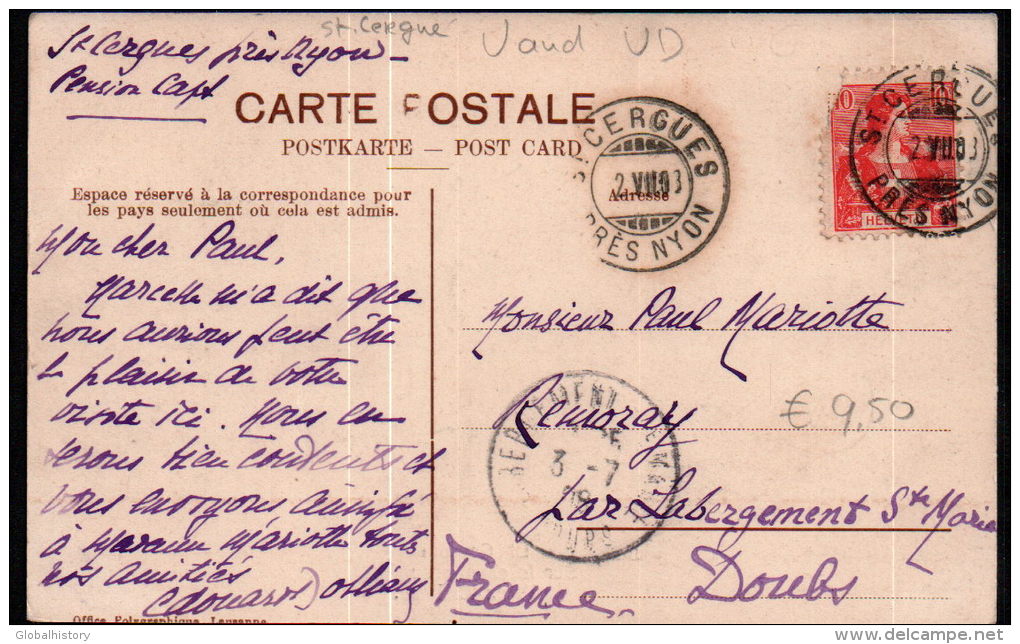 St. Cergue Vaud VD
St Cergues près Nyon
Pension Capt
CARTE POSTALE
POSTKARTE — POST CARD
ST. CERGUES
2 VII.08
PRÈS NYON
10
HELVETIA
ST. CERGUES
2 VII.08
PRÈS NYON
Adresse
Espace réservé à la correspondance pour
les pays seulement où cela est admis.
Mon cher Paul,
Marcelle m'a dit que
nous aurions peut être
le plaisir de votre
visite ici. Nous en
serons bien contents et
vous envoyons ainsi qu'
à Maman Mariotte toutes
nos amitiés
Edouard
Monsieur Paul Mariotte
Remoray
par Labergement Ste Marie
Doubs
France
3 -7
08
DOUBS
€ 9,50
Office Polygraphique, Lausanne
Globalhistory
delcampe.net